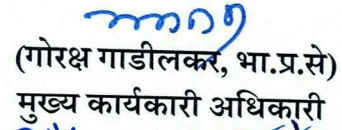 (गोरक्ष गाडीलकर, भा.प्र.से)
मुख्य कार्यकारी अधिकारी